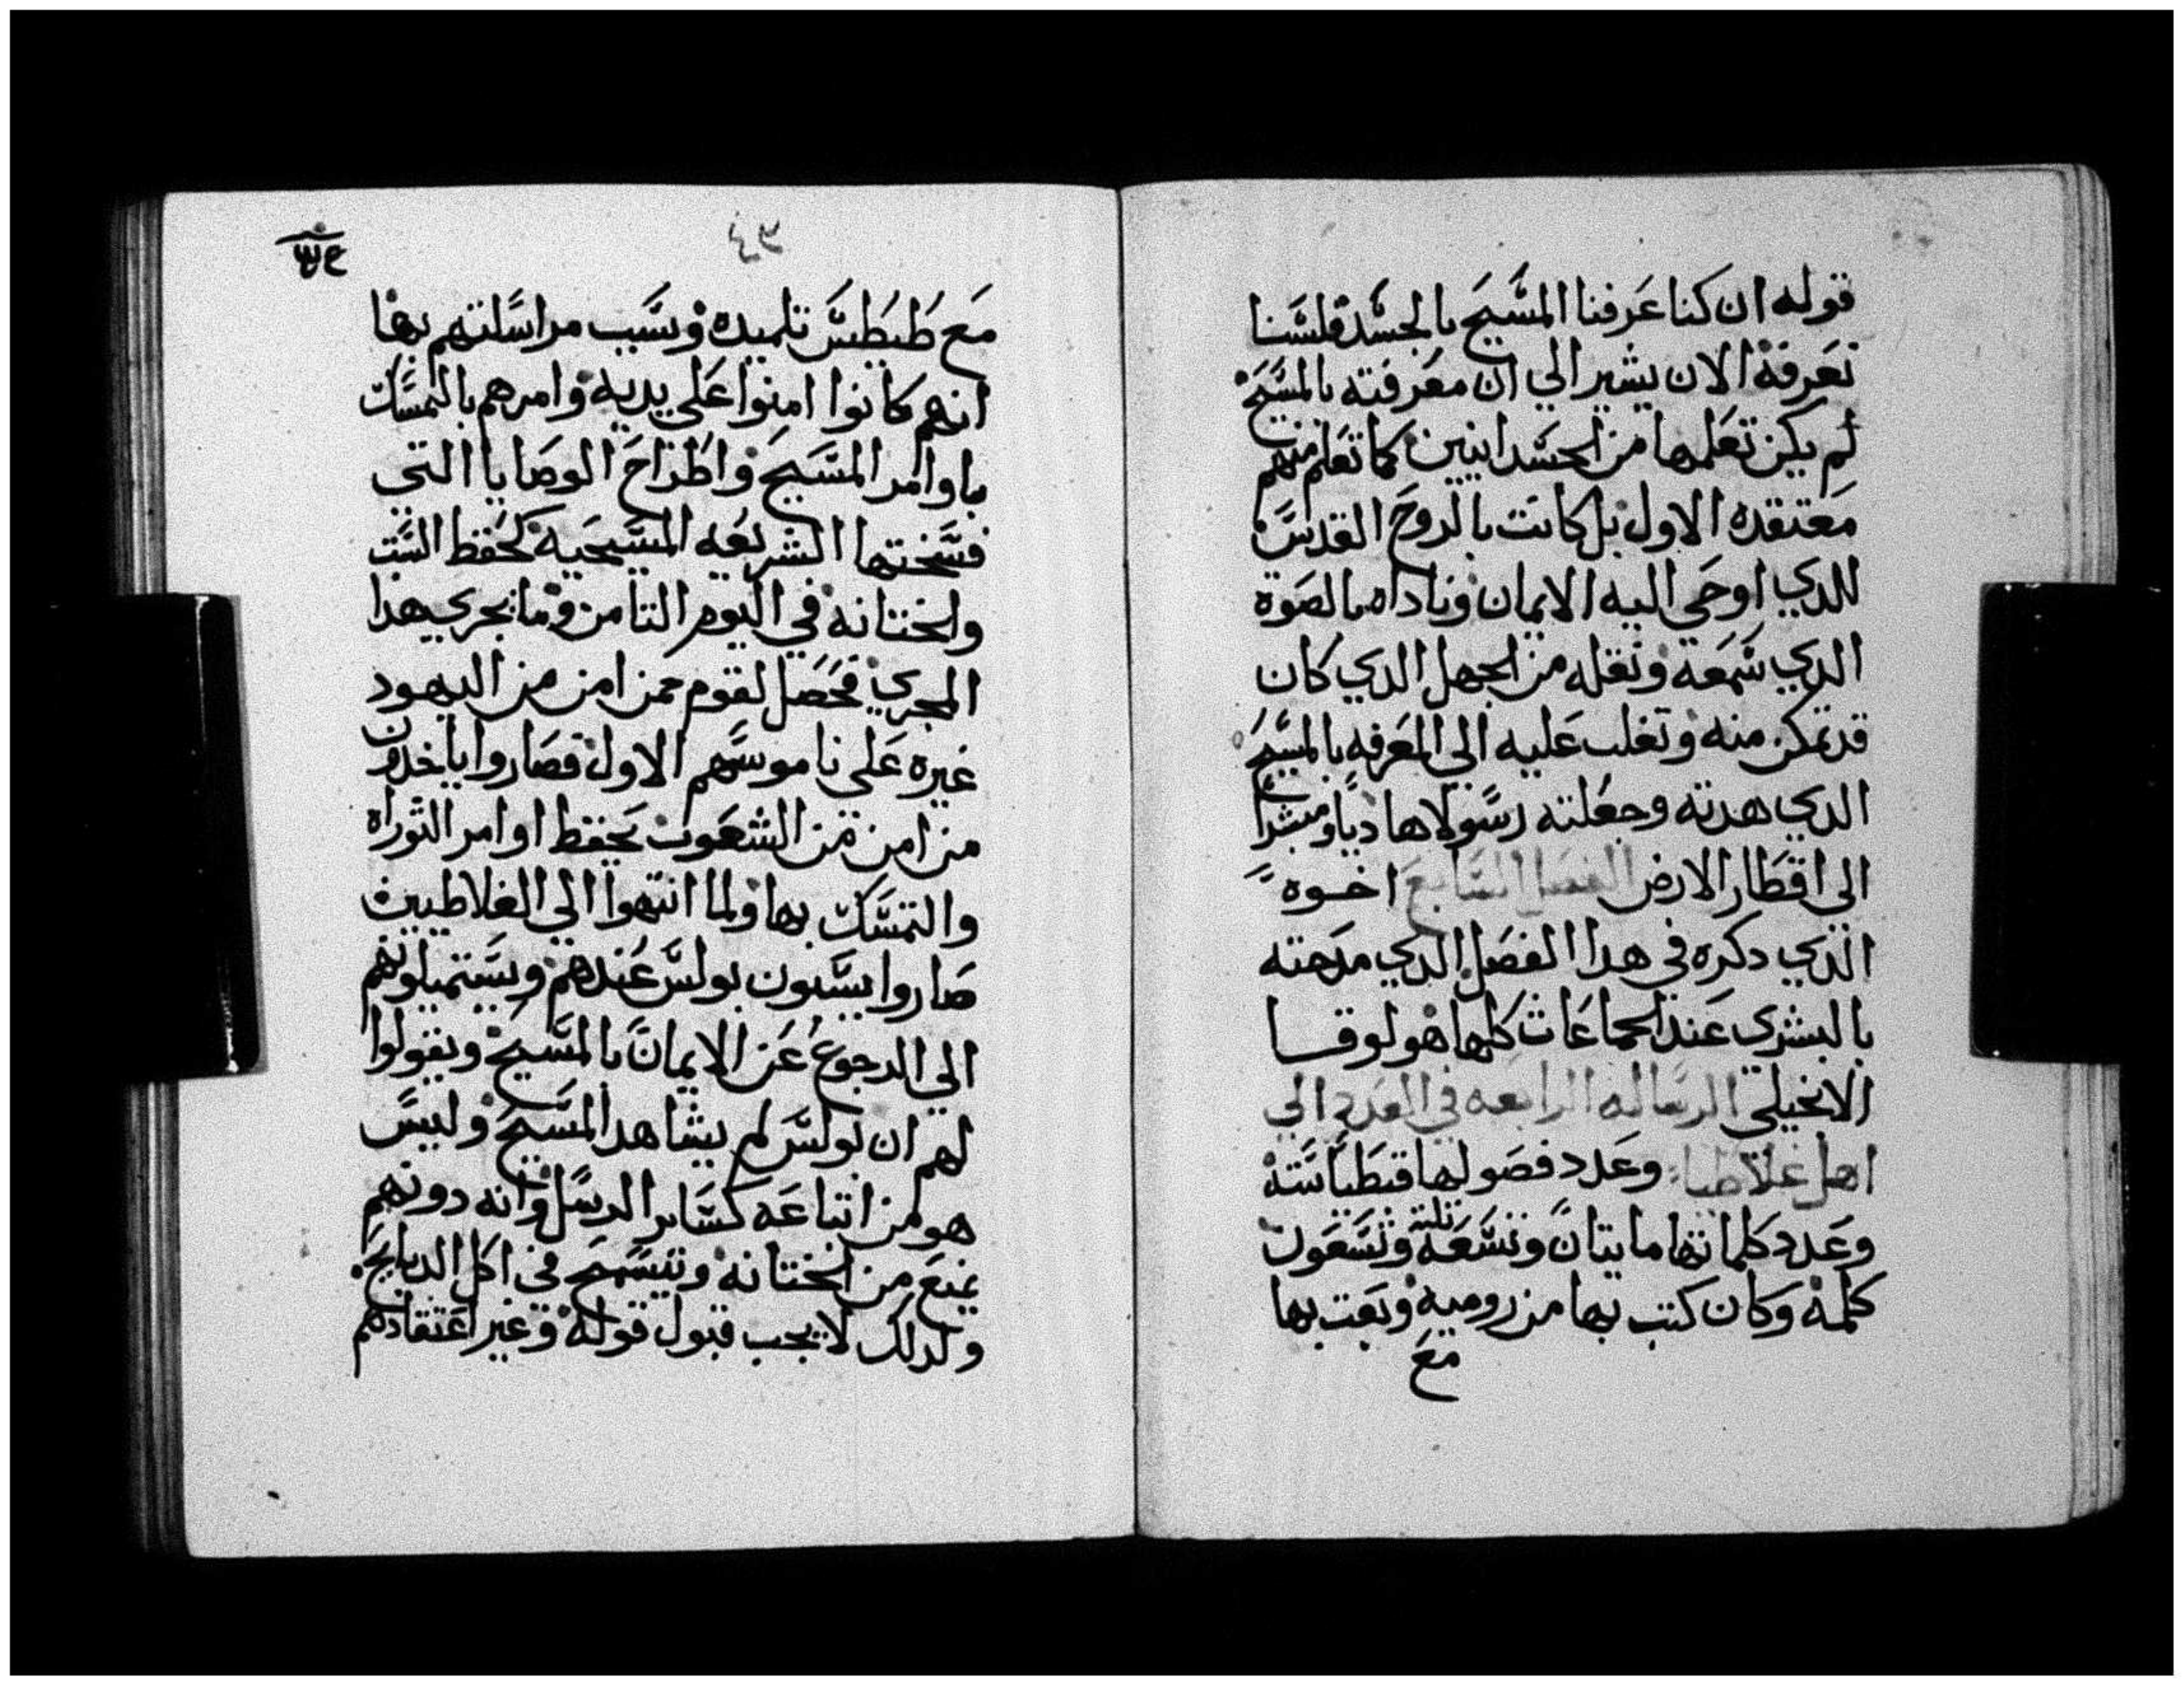 قوله ان كنا عرفنا المسيح بالجسد فلسنا
نعرفه الان يشير الي ان معرفته بالمسيح
لم يكن تعلمها من الجسدانيين كما تعلم منهم
معتقده الاول بل كانت بالروح القدس
الدي اوحي اليه الايمان وناداه بالصوة
الدي سمعه ونقله من الجهل الدي كان
قد تمكن منه وتغلب عليه الي المعرفه بالمسيح
الدي هدته وجعلته رسولا هاديا ومبشرا
الي اقطار الارض الفصل السابع اخوه
الدي دكره في هدا الفصل الدي مدحته
بالبشري عند الجماعات كلها هو لوقا
الانجيلي الرساله الرابعه في العدد الي
اهل غلاطيا وعدد فصولها قبطيا سته
وعدد كلماتها مايتان وتسعه وتسعون
كلمه وكان كتب بها من روميه وبعت بها
مع
مع طيطس تلميده وسبب مراسلتهم بها
انهم كانوا امنوا علي يديه وامرهم بالتمسك
باوامر المسيح واطراح الوصايا التي
فسختها الشريعه المسيحيه كحفظ السبت
والختانه في اليوم التامن وما يجري هدا
المجري فحصل لقوم ممن امن من اليهود
غيره علي ناموسهم الاول فصاروا ياخدون
من امن من الشعوب بحفظ اوامر التوراه
والتمسك بها ولما انتهوا الي الغلاطيين
صاروا يسبون بولس عندهم ويستميلونهم
الي الرجوع عن الايمان بالمسيح ويقولوا
لهم ان بولس لم يشاهد المسيح وليس
هو من اتباعه كساير الرسل وانه دونهم
يمنع من الختانه ويتسمح في اكل الدبايح
ولدلك لا يجب قبول قوله وغير اعتقادهم